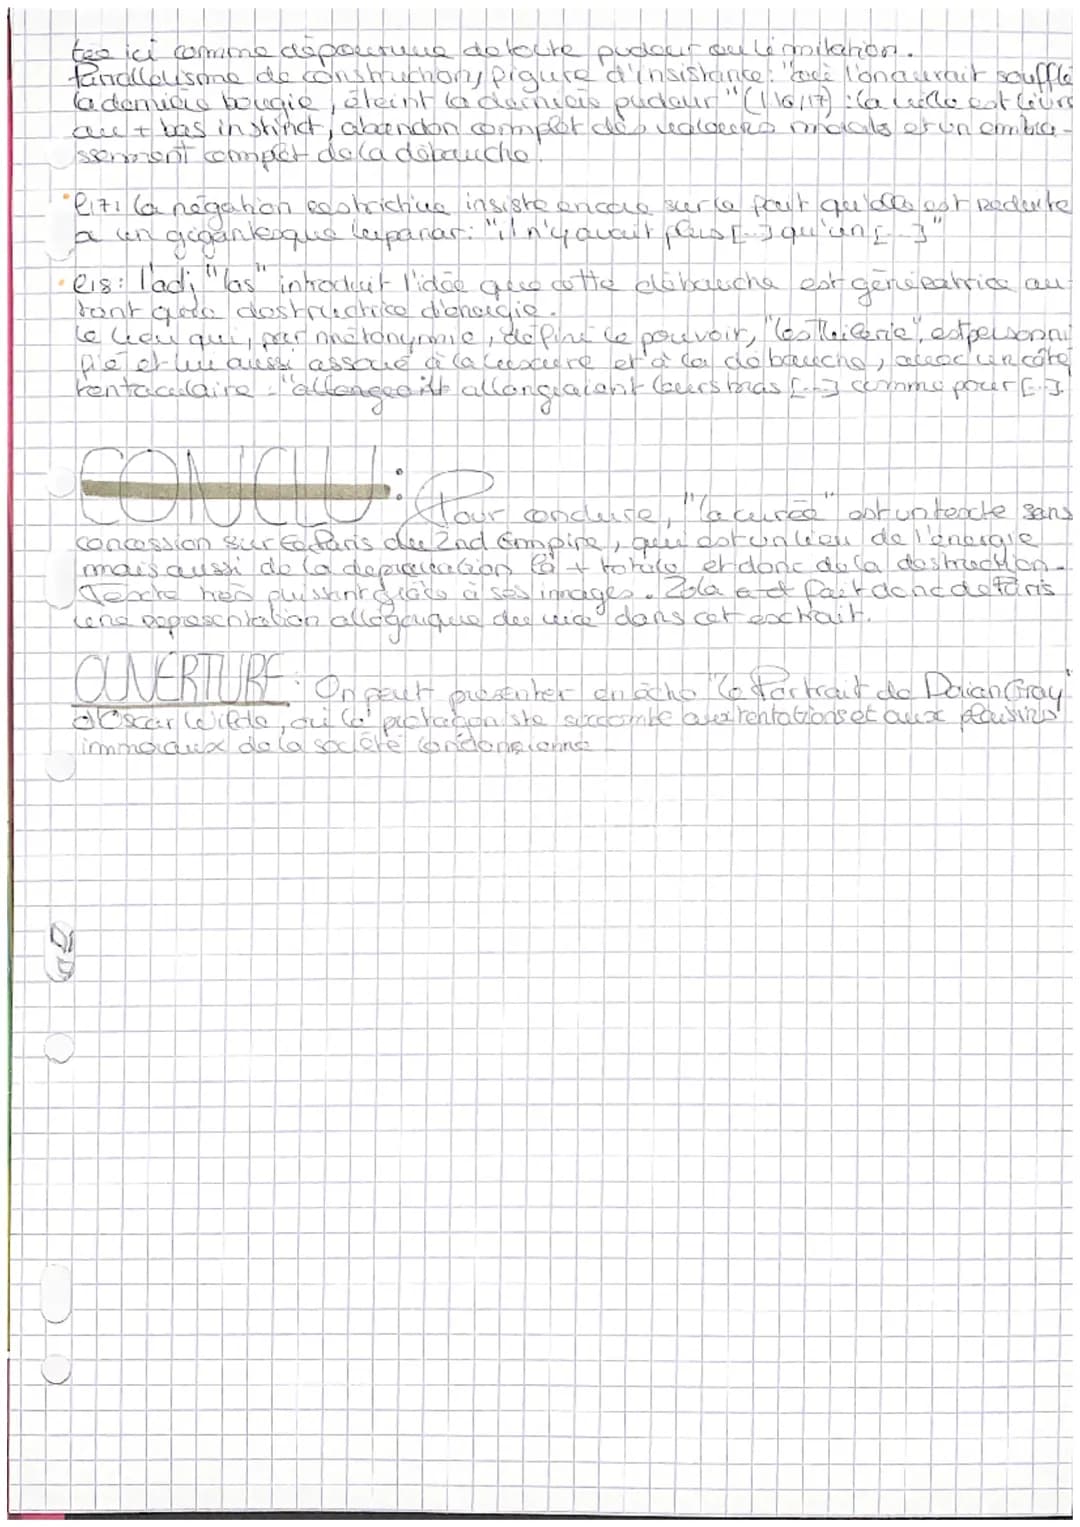 tée ici comme dépourvue de toute pudeur ou limitation.
Parallélisme de construction, figure d'insistance: "avoir l'on aurait soufflé
la dernière bougie, éteint la dernière pudeur" (l.16,17) : la ville est livrée
au + bas instinct, abandon complet des valeurs morals et un embra-
ssement complet de la débauche.
• l17: la négation restrictive insiste encore sur le fait qu'elle est réduite
à un gigantesque lupanar: "il n'y avait plus [...] qu'un [...]"
• l18: l'adj "las" introduit l'idée que cette débauche est génératrice au-
tant que destructrice d'énergie.
Le lieu qui, par métonymie, défini le pouvoir, "les Tuilerie", est personni
fié et lui aussi associé à la luxure et à la débauche, avec un côté
tentaculaire : "allongeait allongeaient leurs bras [...] comme pour [...].
CONCLU : Pour conclure, "la curée" est un texte sans
concession sur le Paris du 2nd Empire, qui est un lieu de l'énergie
mais aussi de la dépravation la + totale et donc de la destruction.
Texte très puissant grâce à ses images. Zola a et fait donc de Paris
une représentation allégorique du vice dans cet extrait.
OUVERTURE : On peut présenter en écho "Le Portrait de Dorian Gray"
d'Oscar Wilde, où le protagoniste succombe aux tentations et aux plaisirs
immoraux de la société londonienne